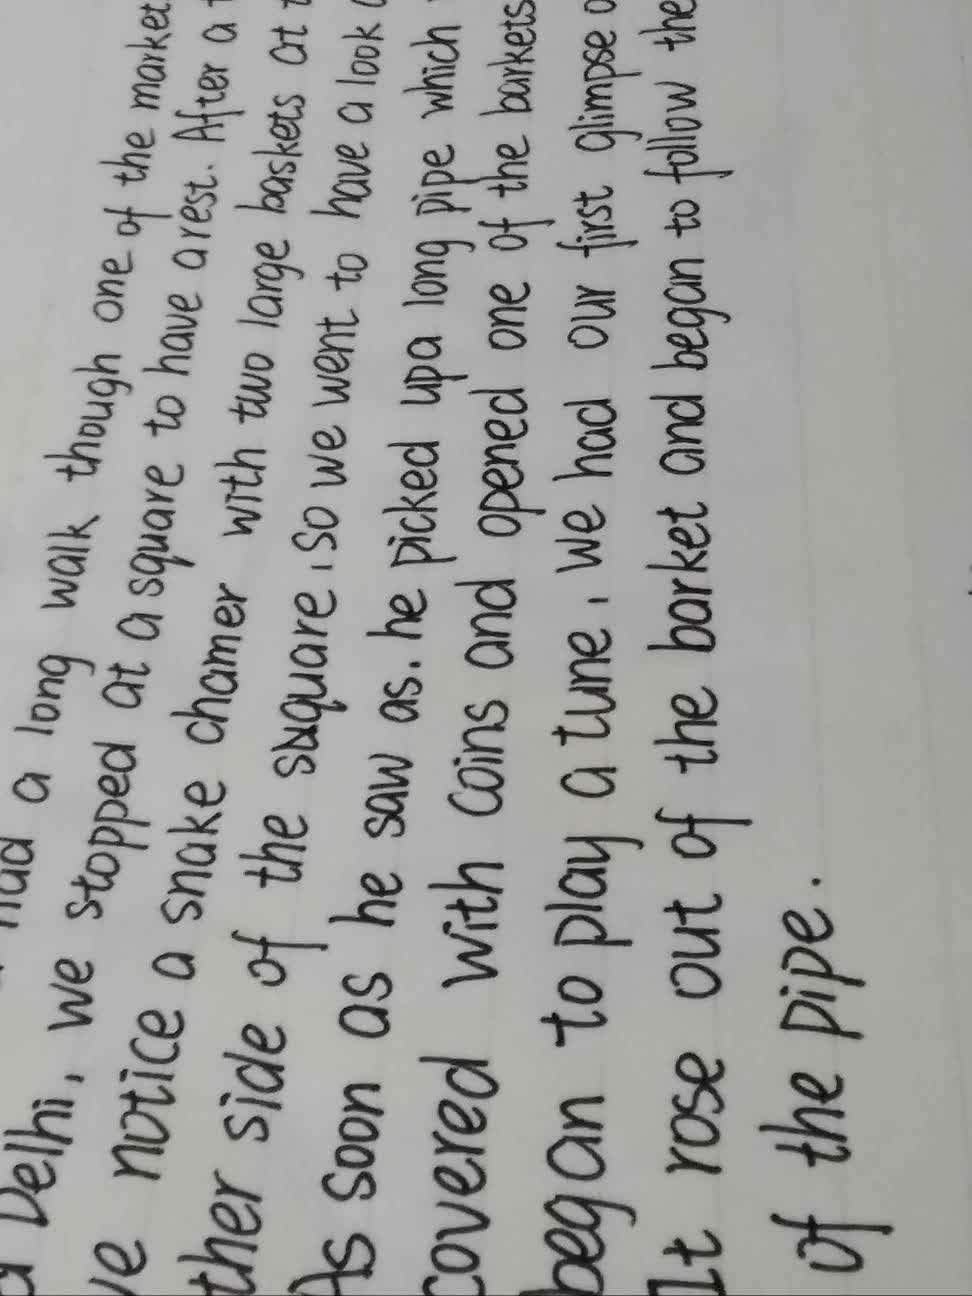 had a long walk though one of the market
Delhi, we stopped at a square to have arest. After a
notice a snake chamer with two large baskets at
ther side of the square, so we went to have a look
As soon as he saw as. he picked upa long pipe which
covered with coins and opened one of the barkets
began to play a tune, we had our first glimpse
It rose out of the barket and began to follow the
of the pipe.